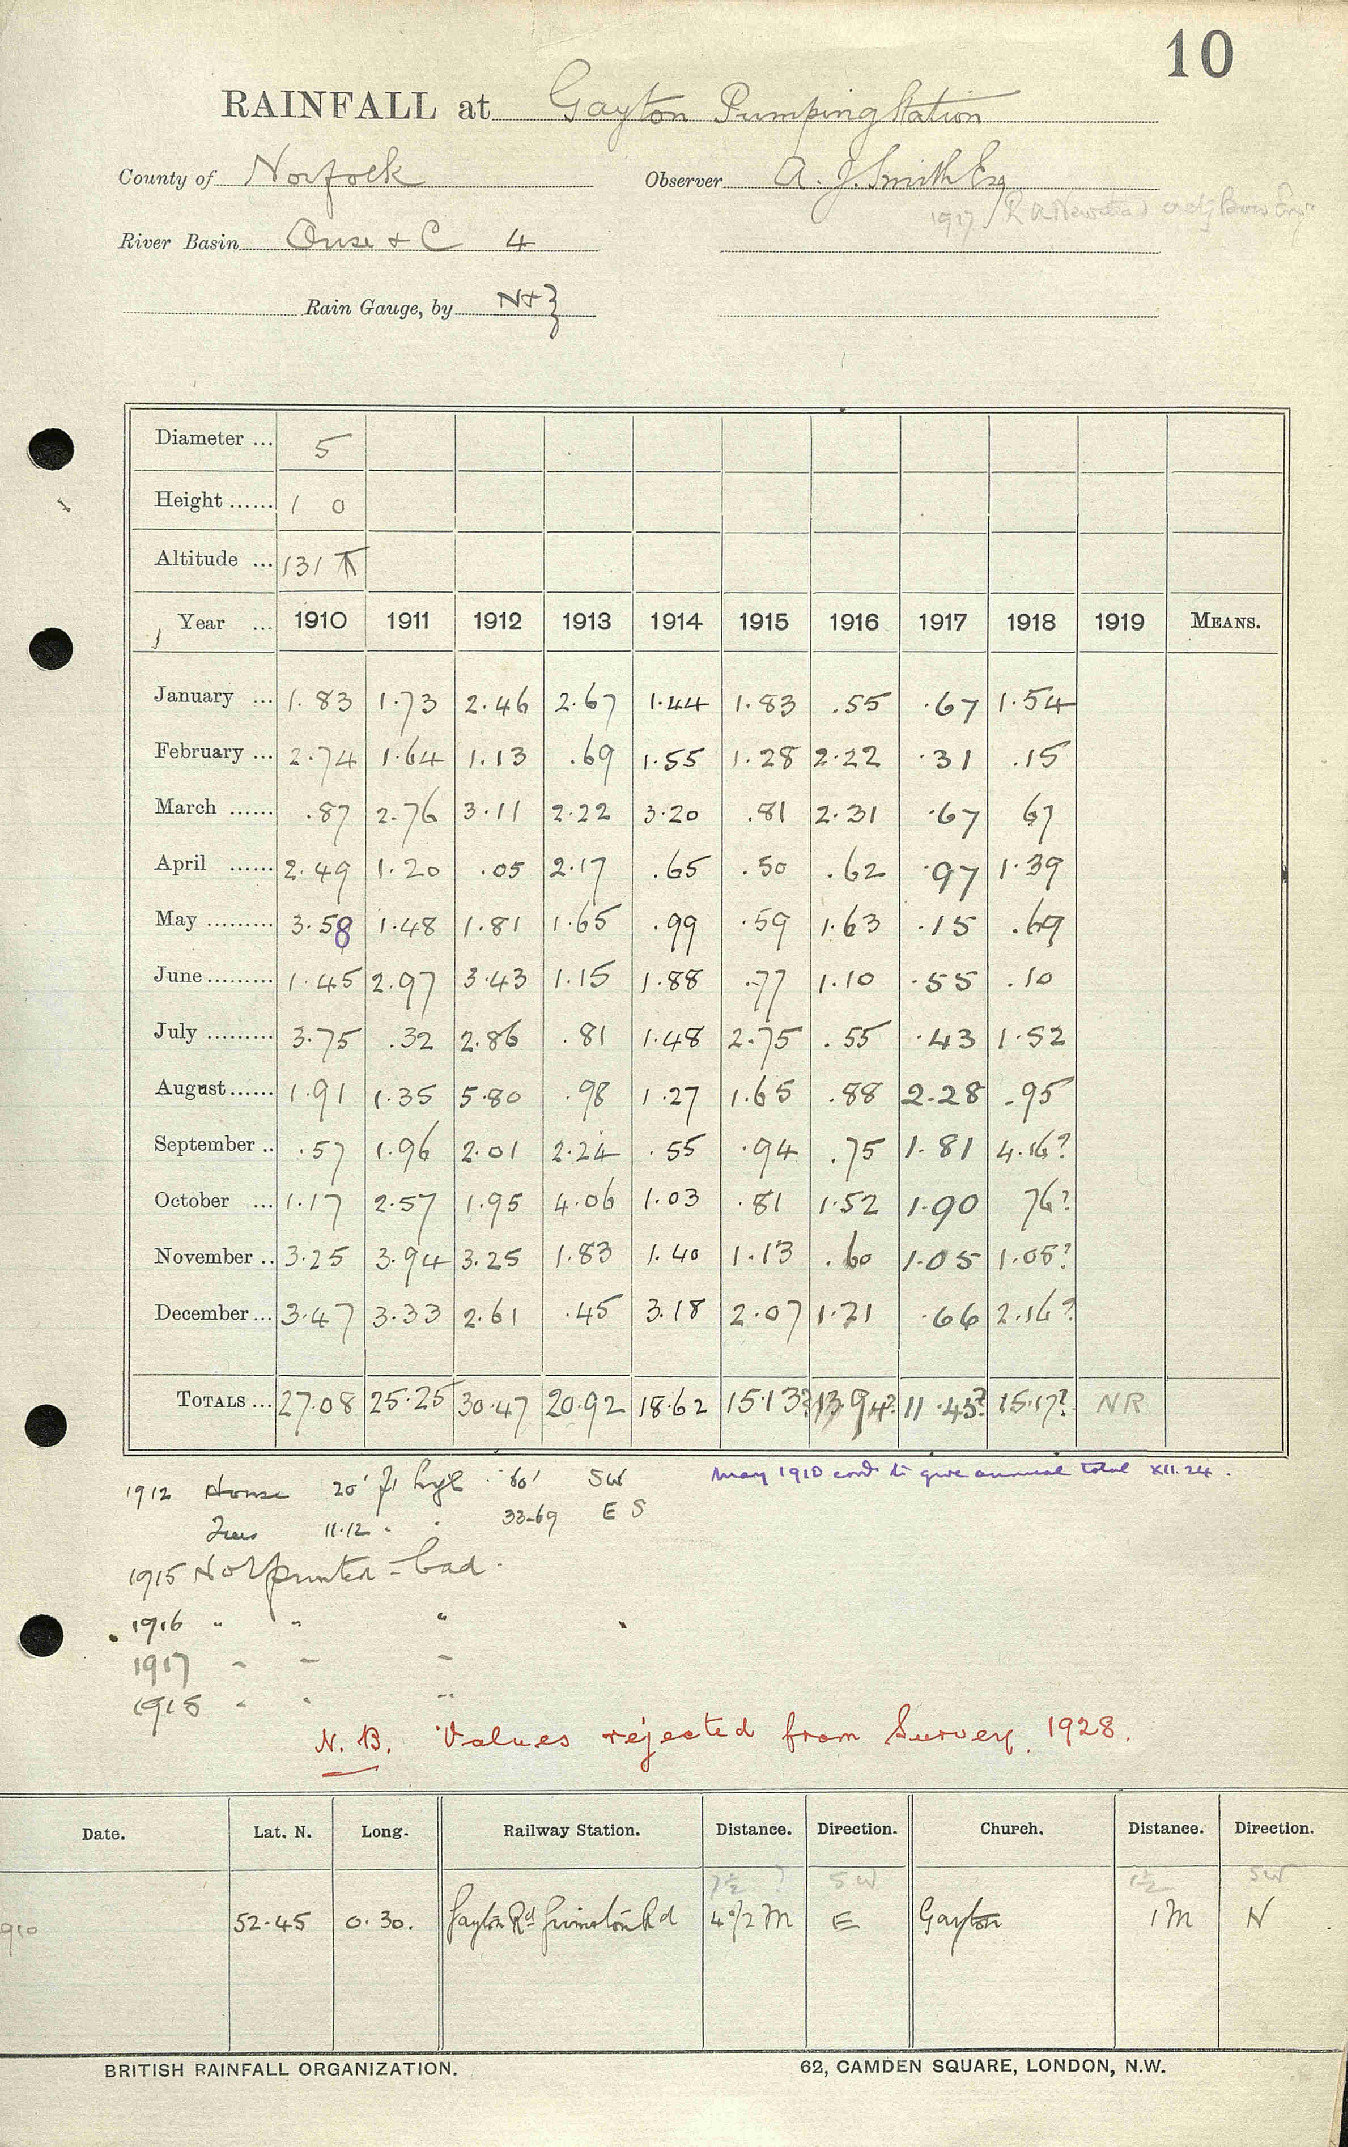 10
RAINFALL at Gayton Pumping Station
County of Norfolk Observer A. J. Smith Esq
1917
River Basin Ouse + C 4
Rain Gauge, by N+Z
Diameter ... 5
Height ...... 1 0
Altitude ... 131
Year ... 1910 1911 1912 1913 1914 1915 1916 1917 1918 1919 MEANS.
January ... 1.83 1.73 2.46 2.67 1.44 1.83 .55 .67 1.54
February ... 2.74 1.64 1.13 .69 1.55 1.28 2.22 .31 .15
March ...... .87 2.76 3.11 2.22 3.20 .81 2.31 .67 67
April ...... 2.49 1.20 .05 2.17 .65 .50 .62 .97 1.39
May ......... 3.58 1.48 1.81 1.65 .99 .59 1.63 .15 .69
June ......... 1.45 2.97 3.43 1.15 1.88 .77 1.10 .55 .10
July ......... 3.75 .32 2.86 .81 1.48 2.75 .55 .43 1.52
August ...... 1.91 1.35 5.80 .98 1.27 1.65 .88 2.28 .95
September .. .57 1.96 2.01 2.24 .55 .94 .75 1.81 4.16?
October ... 1.17 2.57 1.95 4.06 1.03 .81 1.52 1.90 76?
November .. 3.25 3.94 3.25 1.83 1.40 1.13 .60 1.05 1.08?
December ... 3.47 3.33 2.61 .45 3.18 2.07 1.21 .66 2.16?
TOTALS ... 27.08 25.25 30.47 20.92 18.62 15.13? 13.94? 11.45? 15.17? NR
May 1910 cord to give annual total XII.24.
1912 House 20' ft high 60' SW
Trees 11.12 " " 33-69 E S
1915 Not printed - bad.
1916 " " "
1917 " " "
1918 " " "
N.B. Values rejected from Survey. 1928.
Date. Lat. N. Long. Railway Station. Distance. Direction. Church. Distance. Direction.
7½ ? SW 1½ SW
1910 52.45 0.30. Gayton Rd Grimston Rd 4 1/2 M E Gayton 1 M N
BRITISH RAINFALL ORGANIZATION. 62, CAMDEN SQUARE, LONDON, N.W.